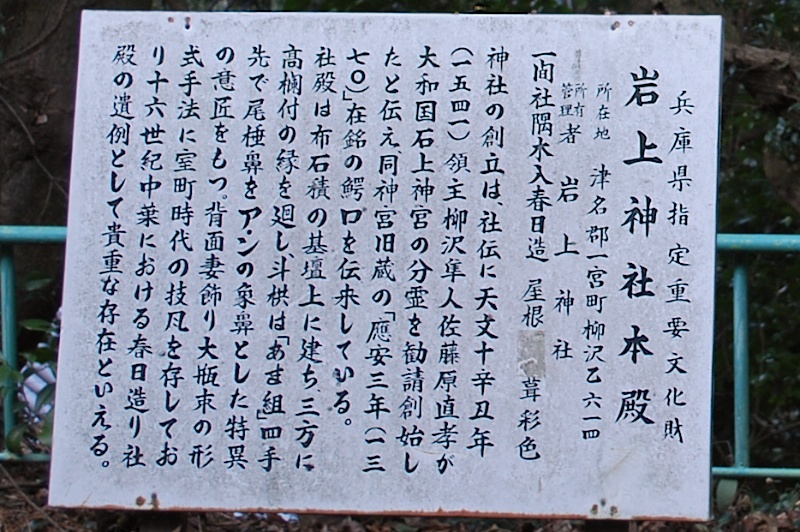 兵庫県指定重要文化財
岩上神社本殿
所在地 津名郡一宮町柳沢乙六一四
所有管理者 岩上神社
一間社隅木入春日造 屋根 葺彩色
神社の創立は、社伝に天文十辛丑年
(一五四一)領主柳沢隼人佐藤原直孝が
大和国石上神宮の分霊を勧請創始し
たと伝え、同神宮旧蔵の「應安三年(一三
七〇)」在銘の鰐口を伝来している。
社殿は布石積の基壇上に建ち、三方に
高欄付の縁を廻し、斗栱は「あま組」四手
先で尾棰鼻をアンの象鼻とした特異
の意匠をもつ。背面妻飾り大瓶束の形
式手法に室町時代の技凡を存してお
り十六世紀中葉における春日造り社
殿の遺例として貴重な存在といえる。